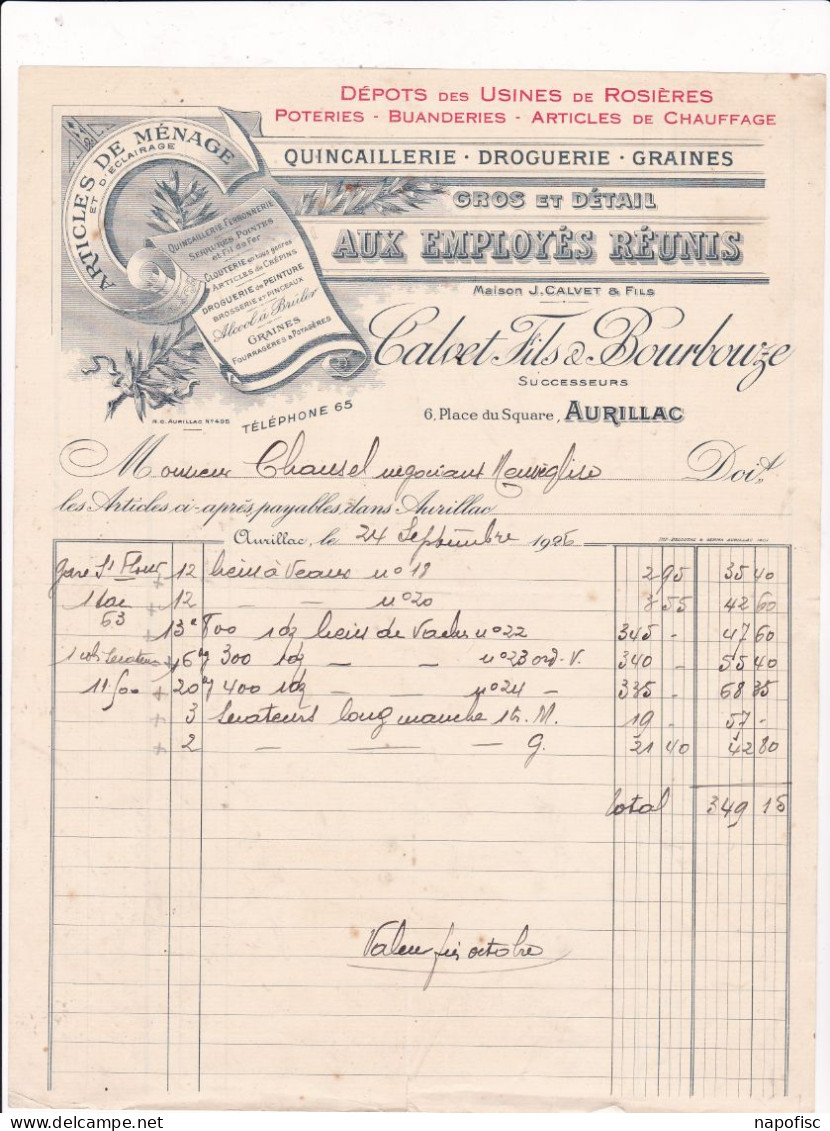 DÉPOTS DES USINES DE ROSIÈRES
POTERIES - BUANDERIES - ARTICLES DE CHAUFFAGE
ARTICLES DE MÉNAGE
ET D'ÉCLAIRAGE
QUINCAILLERIE · DROGUERIE · GRAINES
GROS ET DÉTAIL
AUX EMPLOYÉS RÉUNIS
QUINCAILLERIE FERRONNERIE
SERRURES POINTES
et Fil de Fer
CLOUTERIE en tous genres
ARTICLES de CRÉPINS
DROGUERIE de PEINTURE
BROSSERIE ET PINCEAUX
Alcool à Brûler
GRAINES
FOURRAGÈRES & POTAGÈRES
Maison J. CALVET & FILS
Calvet Fils & Bourbouze
SUCCESSEURS
R.C. AURILLAC N° 495
TÉLÉPHONE 65
6, Place du Square, AURILLAC
Monsieur Chausel negociant Neuvéglise Doit
les Articles ci-après, payables dans Aurillac
Aurillac, le 24 Septembre 1926
gare St Flour 12 liens à Veaux n° 18 2 95 35 40
12 — — n° 20 3 55 42 60
63 13 800 1 dz liens de Vaches n° 22 345 - 47 60
16 kg 300 1 dz — — n° 23 ord. V. 340 — 55 40
20 kg 400 1 dz — — n° 24 — 335 - 68 35
3 long manche M. 19 - 57 -
2 — — — G. 21 40 42 80
total 349 15
Valeur fin octobre
napofisc